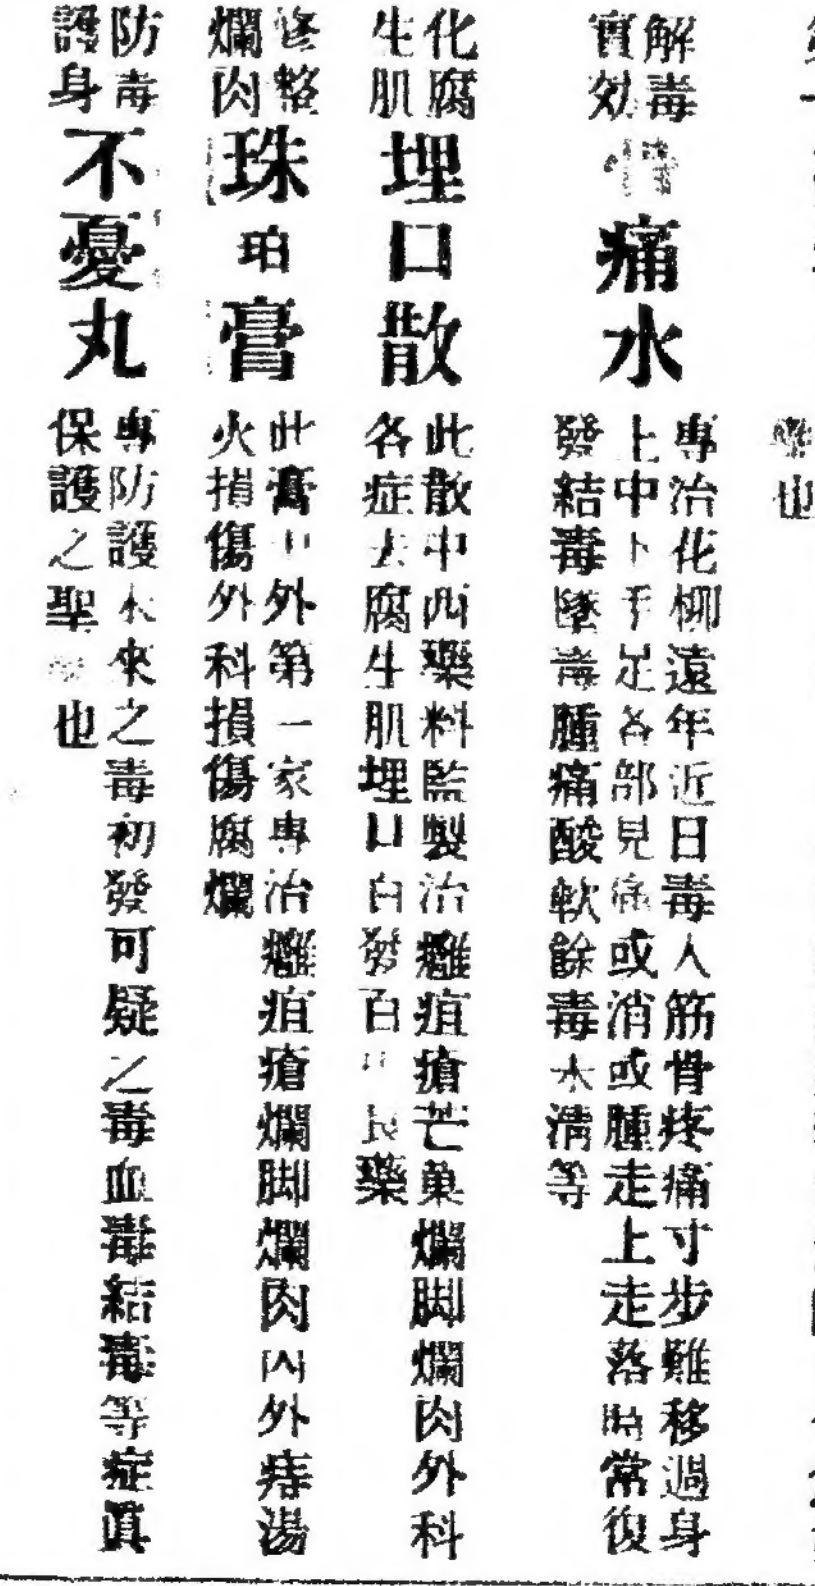 樂也
解毒
實効
痛水
專治花柳遠年近日毒人筋骨疼痛寸步難移過身
上中下手足各部見痛或消或腫走上走落時常復
發結毒墜毒腫痛酸軟餘毒未清等
化腐
生肌
埋口散
此散中西藥料監製治癰疽瘡芒菓爛脚爛肉外科
各症去腐生肌埋口白發百中良藥
修整
爛肉
珠珀膏
此膏中外第一家專治癰疽瘡爛脚爛肉內外痔湯
火損傷外科損傷腐爛
防毒
護身
不憂丸
專防護未來之毒初發可疑之毒血毒結毒等症眞
保護之聖也